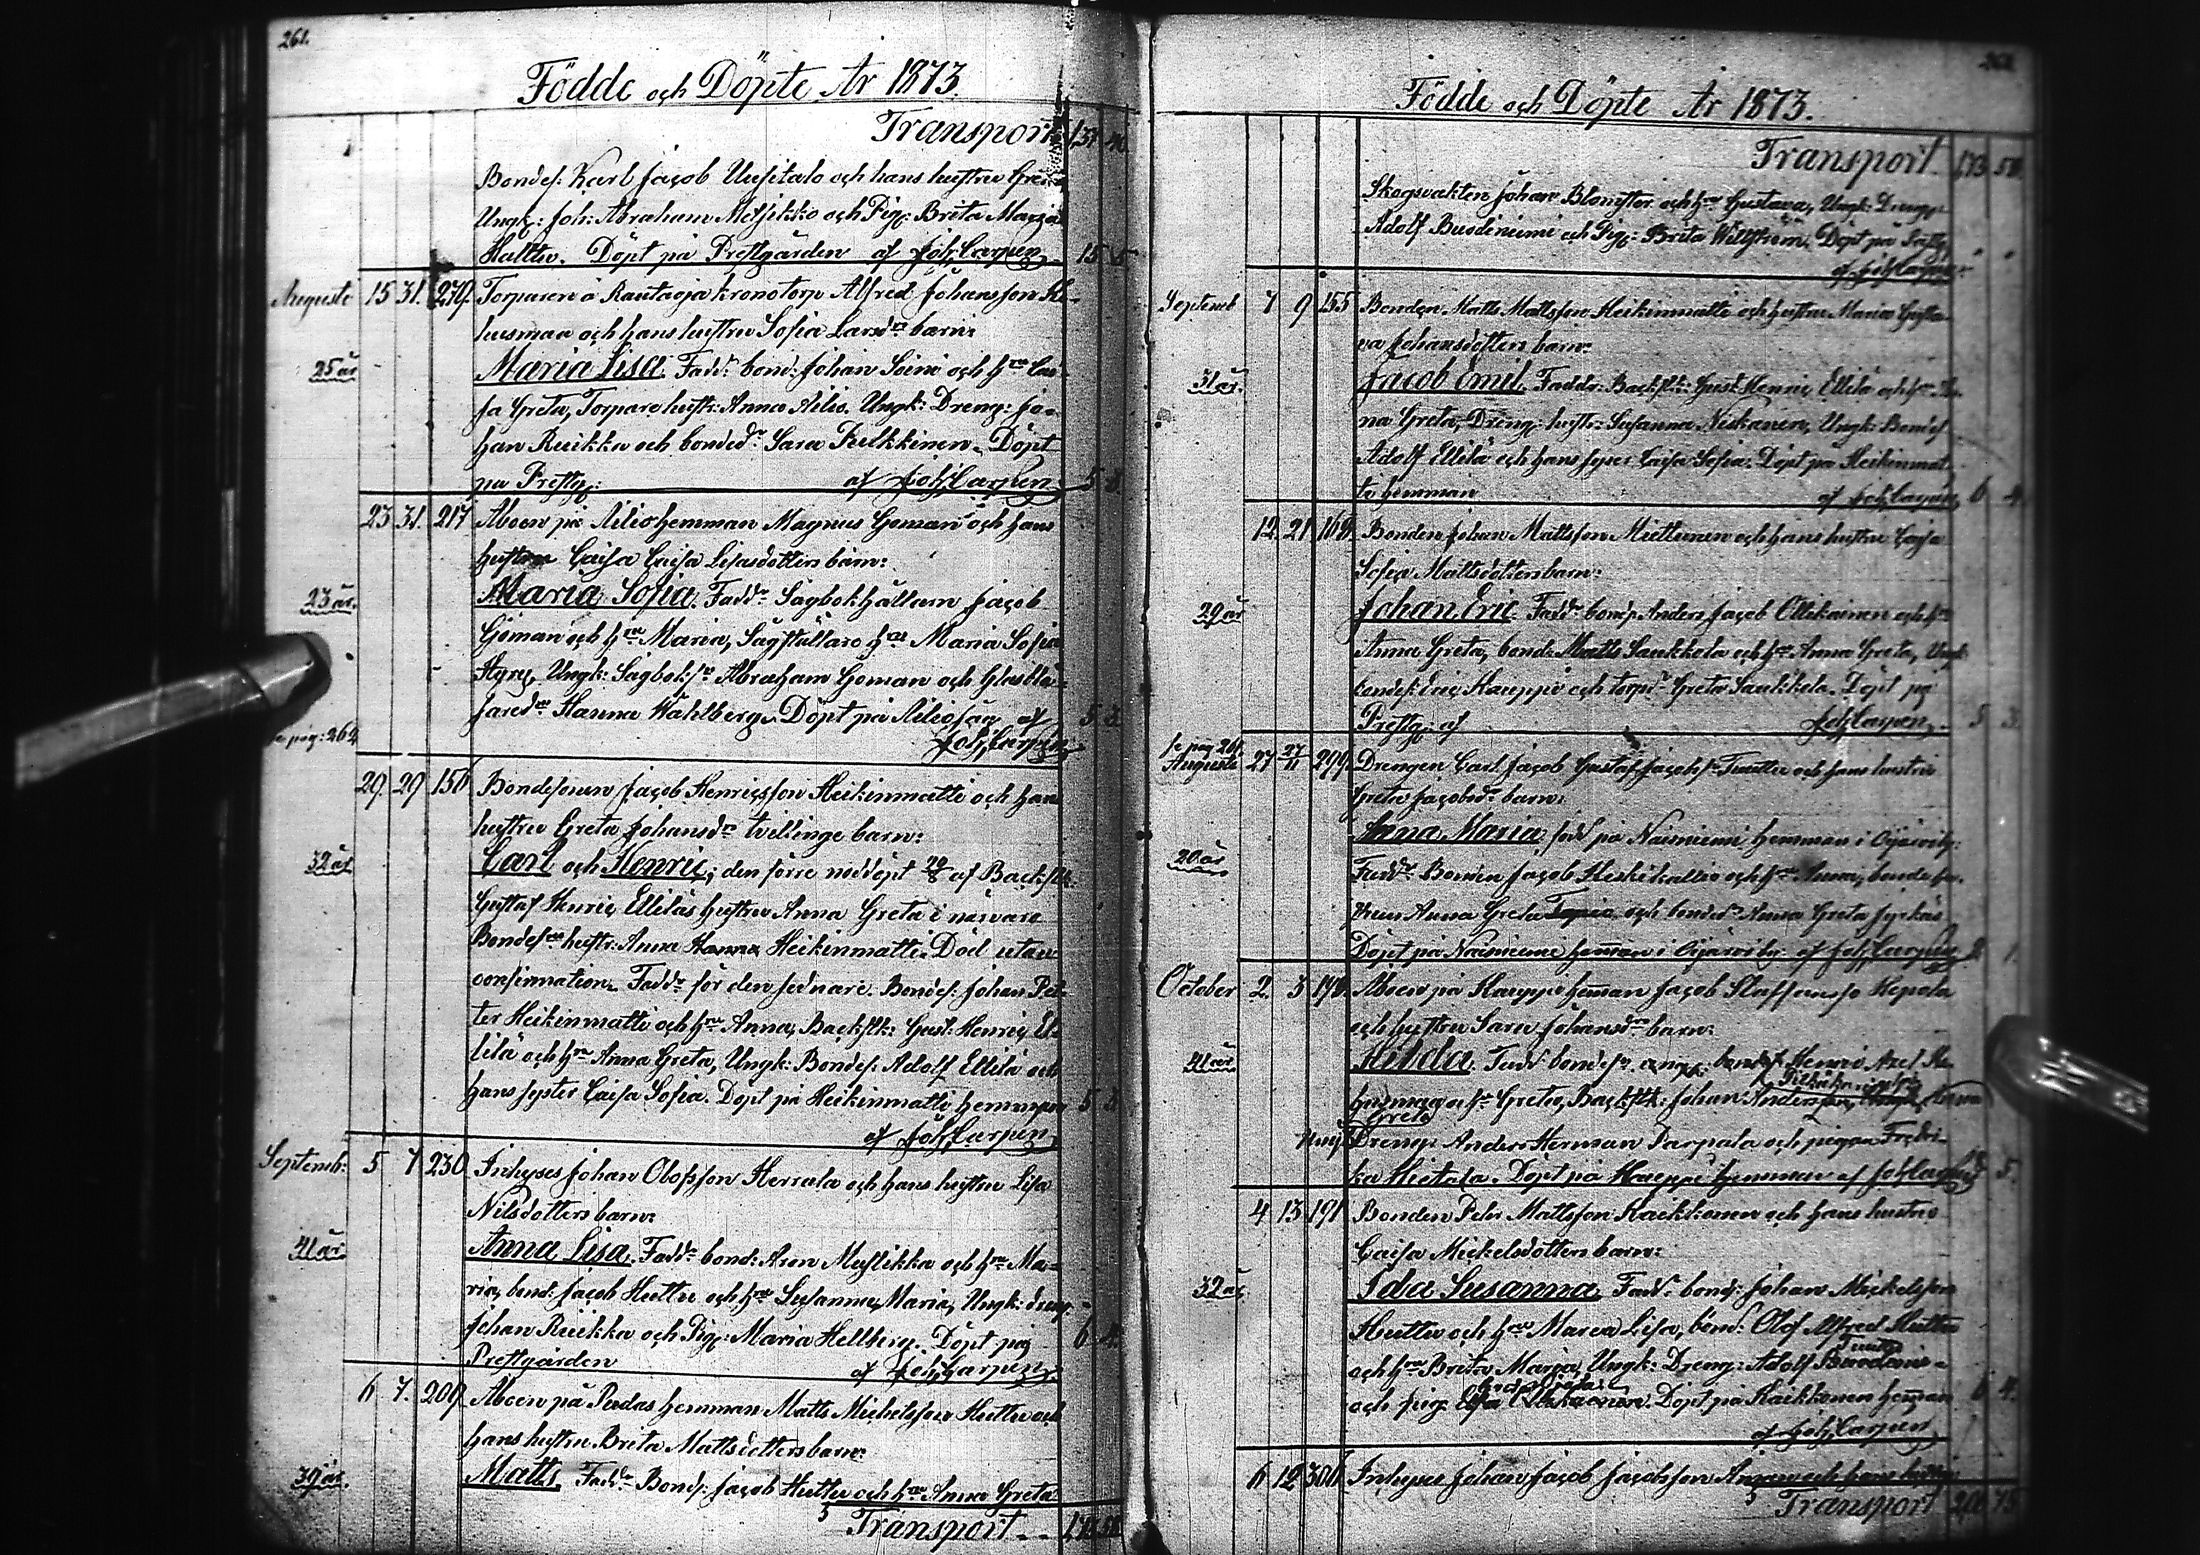 261.
Födde och Döpte År 1873.
Transport 131 40
Bondes. Karl Jacob Uusitalo och hans hustru Greta
Ungk: Joh: Abraham och Pig: Brita Maria
Huttu. Döpt på Prestgården af Joh Carpén 15 5
Augusti 15 31. 279. Torparen å Rautaoja kronotorp Alfred Johansson
husmaa och hans hustru Sofia Larsdrs barn:
25 år Maria Lisa. Faddr bond: Johan Soini och hru Cai-
sa Greta, Torpare hustr: Anna Ailio. Ungk: Dreng: Jo-
han Ruikka och bonded: Sara Pelkkinen. Döpt
på Prestg: af Joh Carpén 5 3.
23 31. 217 Åboen på Ailio hemman Magnus Goman och hans
hustru Caisa Caisa Lisasdotters barn:
23 år. Maria Sofia. Faddr Sågbokhållarn Jacob
Goman och hru Maria, Sågställare hru Maria Sofia
Ungk: Sågboksr Abraham Goman och Glasblå-
saredr Hanna Wahlberg. Döpt på Ailiosåg af 5 3.
Joh Carpén
se pag: 262
29. 29 150 Bondesonen Jacob Henricsson Heikinmatti och hans
hustru Greta Johansdrs tvillinge barn:
32 år Carl och Henric; den förre nöddöpt 29/8 af Backstk:
Gustaf Henric Ellilas hustru Anna Greta i närvaro
Bondesns hustr: Anna Hanna Heikinmatti. Död utan
confirmation. Faddr för den sednare Bondes: Johan Pet-
ter Heikinmatti och hru Anna, Backstk: Gust: Henric El-
lilä och hru Anna Greta, Ungk: Bondes: Adolf Ellilä och
hans syster Caisa Sofia. Döpt på Heikinmatti hemman 5 3.
af Joh Carpén
Septemb: 5 7 230 Inhyses Johan Olofsson Herrala och hans hustru Lisa
Nilsdotters barn:
41 år Anna Lisa. Faddr bond: Aron Mustikka och hru Ma-
ria, bond: Jacob Huttu och hru Susanna Maria, Ungk: dreng
Johan Ruikka och Pig: Maria Hellberg. Döpt på 6 4.
Prestgården af Joh Carpén
6 7. 209 Åboen på Perdas hemman Matts Michelsson Huttu och
hans hustru Brita Mattsdotters barn:
39 år. Matts. Faddr Bonds: Jacob Huttu och hru Anna Greta
Transport

Födde och Döpte År 1873.
Transport 173 58
Skogsvakten Johan Blomster och hru Gustava, Ungk: Dreng:
Adolf Buodiniemi och Pig: Brita Wikström. Döpt på
af Joh Carpén
Septemb 7 9 155 Bonden Matts Mattsson Heikinmatti och hustru Maria Gusta-
va Johansdotters barn:
31 år. Jacob Emil. Faddr: Backstk: Gust Henric Ellilä och hru An-
na Greta, Dreng: hustr: Susanna Niskanen, Ungk: Bondes
Adolf Ellilä och hans syster Caisa Sofia. Döpt på Heikinmat-
ti hemman af Joh Carpén 6 4.
12. 21 168 Bonden Johan Mattsson Miettunen och hans hustru Caisa
Sofia Mattsdotters barn:
29 år Johan Eric. Faddr bonds: Anders Jacob Ollikainen och hru
Anna Greta, bond: Matts Saukkola och hru Anna Greta, Ungk:
bondes: Eric Kauppi och torpdr Greta Saukkola. Döpt på
Prestg: af Joh Carpén 5 3.
se pag 261.
Augusti 27 27/11 299. Drengen Carl Jacob Gustaf Jacobs: Tuuttu och hans hustru
Greta Jacobsdrs barn:
20 år Anna Maria född på Näsiniemi hemman i Oijärvi by:
Faddr Bonden Jacob Heskikallio och hru Anna, bonde
Anna Greta Tapio och bondedr Anna Greta Jyrkäs
Döpt på Näsiniemi heman i Oijärvi by af Joh Carpén 2 1.
October 2. 3 178. Åboen på Kauppi heman Jacob Staffanss: Hepola
och hustru Sara Johansdrs barn:
41 år Hilda. Faddr bondesr bondes Henric Axel
husmaa och hru Greta, Backstk: Johan Andersson,
Greta
Ungk: Dreng: Anders Herman Parpala och pigan Fredri-
ka Hietala. Döpt på Kauppi hemman af Joh Carpén 5.
4 13 191 Bonden Pehr Mattsson Raekkonen och hans hustru
Caisa Mickelsdotters barn:
32 år Ida Susanna. Faddr bonds: Johan Mickelsson
Huttu och hru Maria Lisa, bond: Olof Alfred Huttu
och hru Brita Maria, Ungk: Dreng: Adolf
och pig: Döpt på Raekkonen heman 6 4.
af Joh Carpén
6 12 300 Inhyses Johan Jacob Jacobsson och hans hustru
Transport